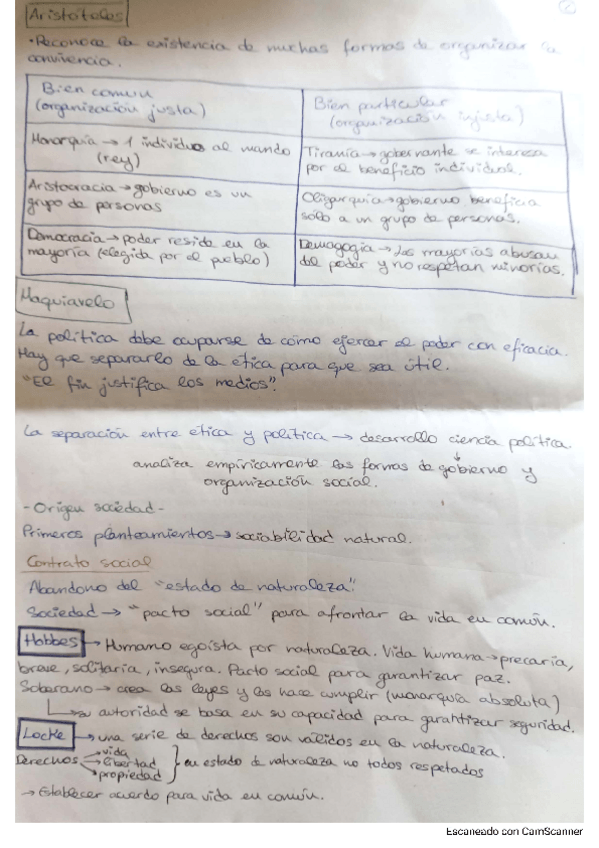 Aristóteles
• Reconoce la existencia de muchas formas de organizar la
convivencia.
Bien común
(organización justa)
Bien particular
(organización injusta)
Monarquía → 1 individuo al mando
(rey)
Tiranía → gobernante se interesa
por el beneficio individual.
Aristocracia → gobierno es un
grupo de personas
Oligarquía → gobierno beneficia
solo a un grupo de personas.
Democracia → poder reside en la
mayoría (elegida por el pueblo)
Demagogia → las mayorías abusan
del poder y no respetan minorías.
Maquiavelo
La política debe ocuparse de cómo ejercer el poder con eficacia.
Hay que separarlo de la ética para que sea útil.
"El fin justifica los medios".
La separación entre ética y política → desarrollo ciencia política.
analiza empíricamente las formas de gobierno y
organización social.
- Origen sociedad -
Primeros planteamientos → sociabilidad natural.
Contrato social
Abandono del "estado de naturaleza"
Sociedad → "pacto social" para afrontar la vida en común.
Hobbes → Humano egoísta por naturaleza. Vida humana → precaria,
breve, solitaria, insegura. Pacto social para garantizar paz.
Soberano → crea las leyes y las hace cumplir (monarquía absoluta)
↳ su autoridad se basa en su capacidad para garantizar seguridad.
Locke → una serie de derechos son válidos en la naturaleza.
Derechos → vida
→ libertad
→ propiedad
} en estado de naturaleza no todos respetados
→ Establecer acuerdo para vida en común.
Escaneado con CamScanner